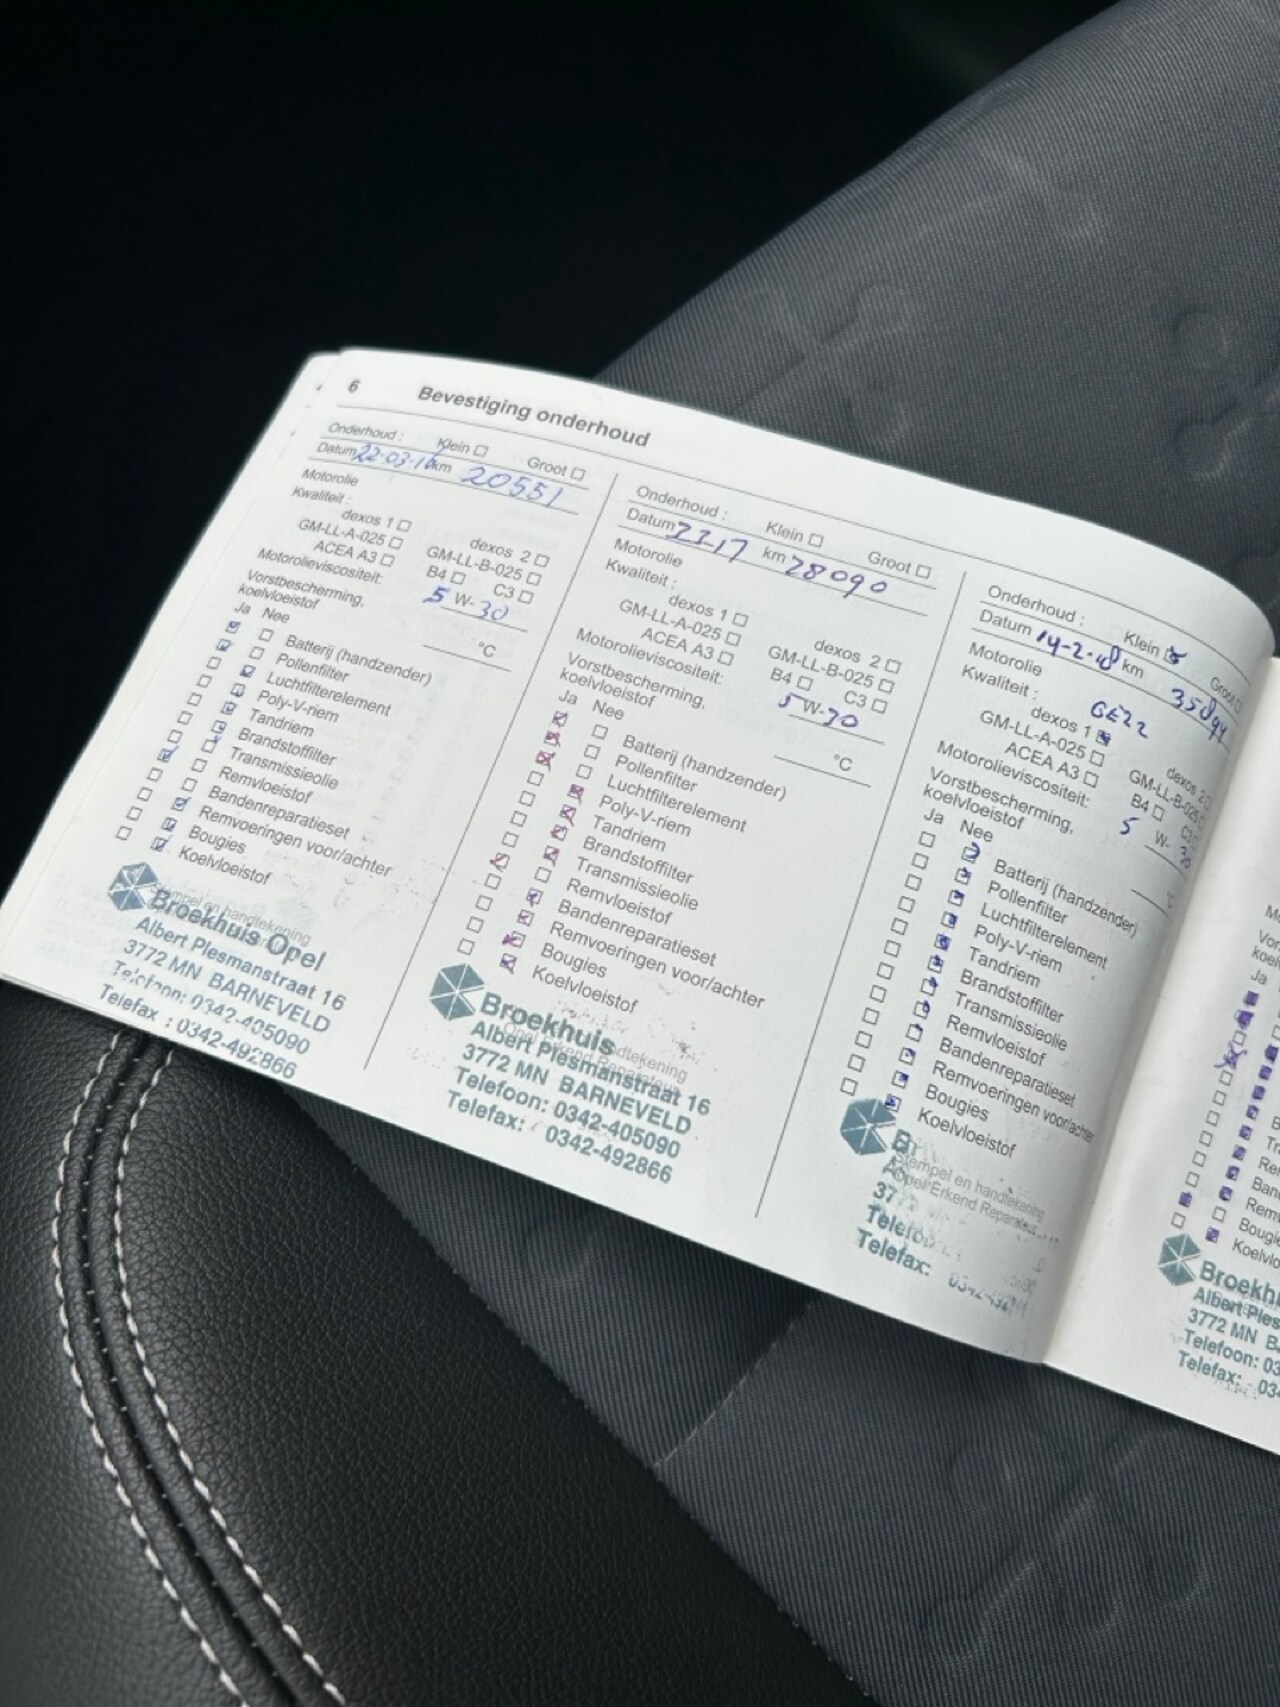 6 Bevestiging onderhoud
Onderhoud : Klein Groot
Datum 22-03-16 km 20551
Motorolie
Kwaliteit :
dexos 1 dexos 2
GM-LL-A-025 GM-LL-B-025
ACEA A3 B4 C3
Motorolieviscositeit: 5 W- 30
Vorstbescherming,
koelvloeistof °C
Ja Nee
Batterij (handzender)
Pollenfilter
Luchtfilterelement
Poly-V-riem
Tandriem
Brandstoffilter
Transmissieolie
Remvloeistof
Bandenreparatieset
Remvoeringen voor/achter
Bougies
Koelvloeistof
Stempel en handtekening
Broekhuis Opel
Albert Plesmanstraat 16
3772 MN BARNEVELD
Telefoon: 0342-405090
Telefax : 0342-492866
Onderhoud : Klein Groot
Datum km 28090
Motorolie
Kwaliteit :
dexos 1 dexos 2
GM-LL-A-025 GM-LL-B-025
ACEA A3 B4 C3
Motorolieviscositeit: 5 W- 30
Vorstbescherming,
koelvloeistof °C
Ja Nee
Batterij (handzender)
Pollenfilter
Luchtfilterelement
Poly-V-riem
Tandriem
Brandstoffilter
Transmissieolie
Remvloeistof
Bandenreparatieset
Remvoeringen voor/achter
Bougies
Koelvloeistof
Broekhuis
Albert Plesmanstraat 16
3772 MN BARNEVELD
Telefoon: 0342-405090
Telefax: 0342-492866
Onderhoud : Klein Groot
Datum 14-2-18 km
Motorolie
Kwaliteit :
dexos 1 dexos 2
GM-LL-A-025 GM-LL-B-025
ACEA A3 B4 C3
Motorolieviscositeit: 5 W- 30
Vorstbescherming,
koelvloeistof
Ja Nee
Batterij (handzender)
Pollenfilter
Luchtfilterelement
Poly-V-riem
Tandriem
Brandstoffilter
Transmissieolie
Remvloeistof
Bandenreparatieset
Remvoeringen voor/achter
Bougies
Koelvloeistof
Stempel en handtekening
Opel Erkend Reparateur
37
Telefax:
Ja
Broekh
Albert Ples
3772 MN B
Telefoon: 03
Telefax: 034